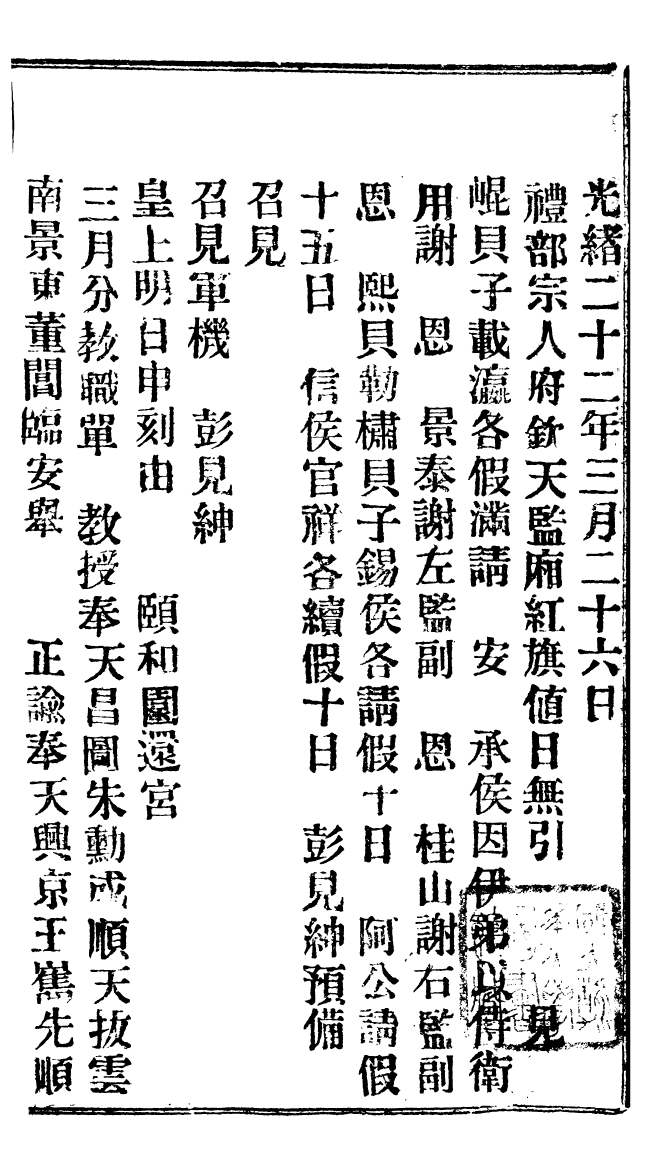 光緒二十二年三月二十六日
禮部宗人府欽天監廂紅旗值日無引　見
崐貝子載瀛各假滿請　安　承侯因伊弟以侍衛
用謝　恩　景泰謝左監副　恩　桂山謝右監副
恩　熙貝勒橚貝子錫侯各請假十日　阿公請假
十五日　信侯官祥各續假十日　彭見紳預備
召見
召見軍機　彭見紳
皇上明日申刻由　頤和園還宮
三月分教職單　教授奉天昌圖朱勳成順天拔雲
南景東董閶臨安舉　正諭奉天興京王雋先順